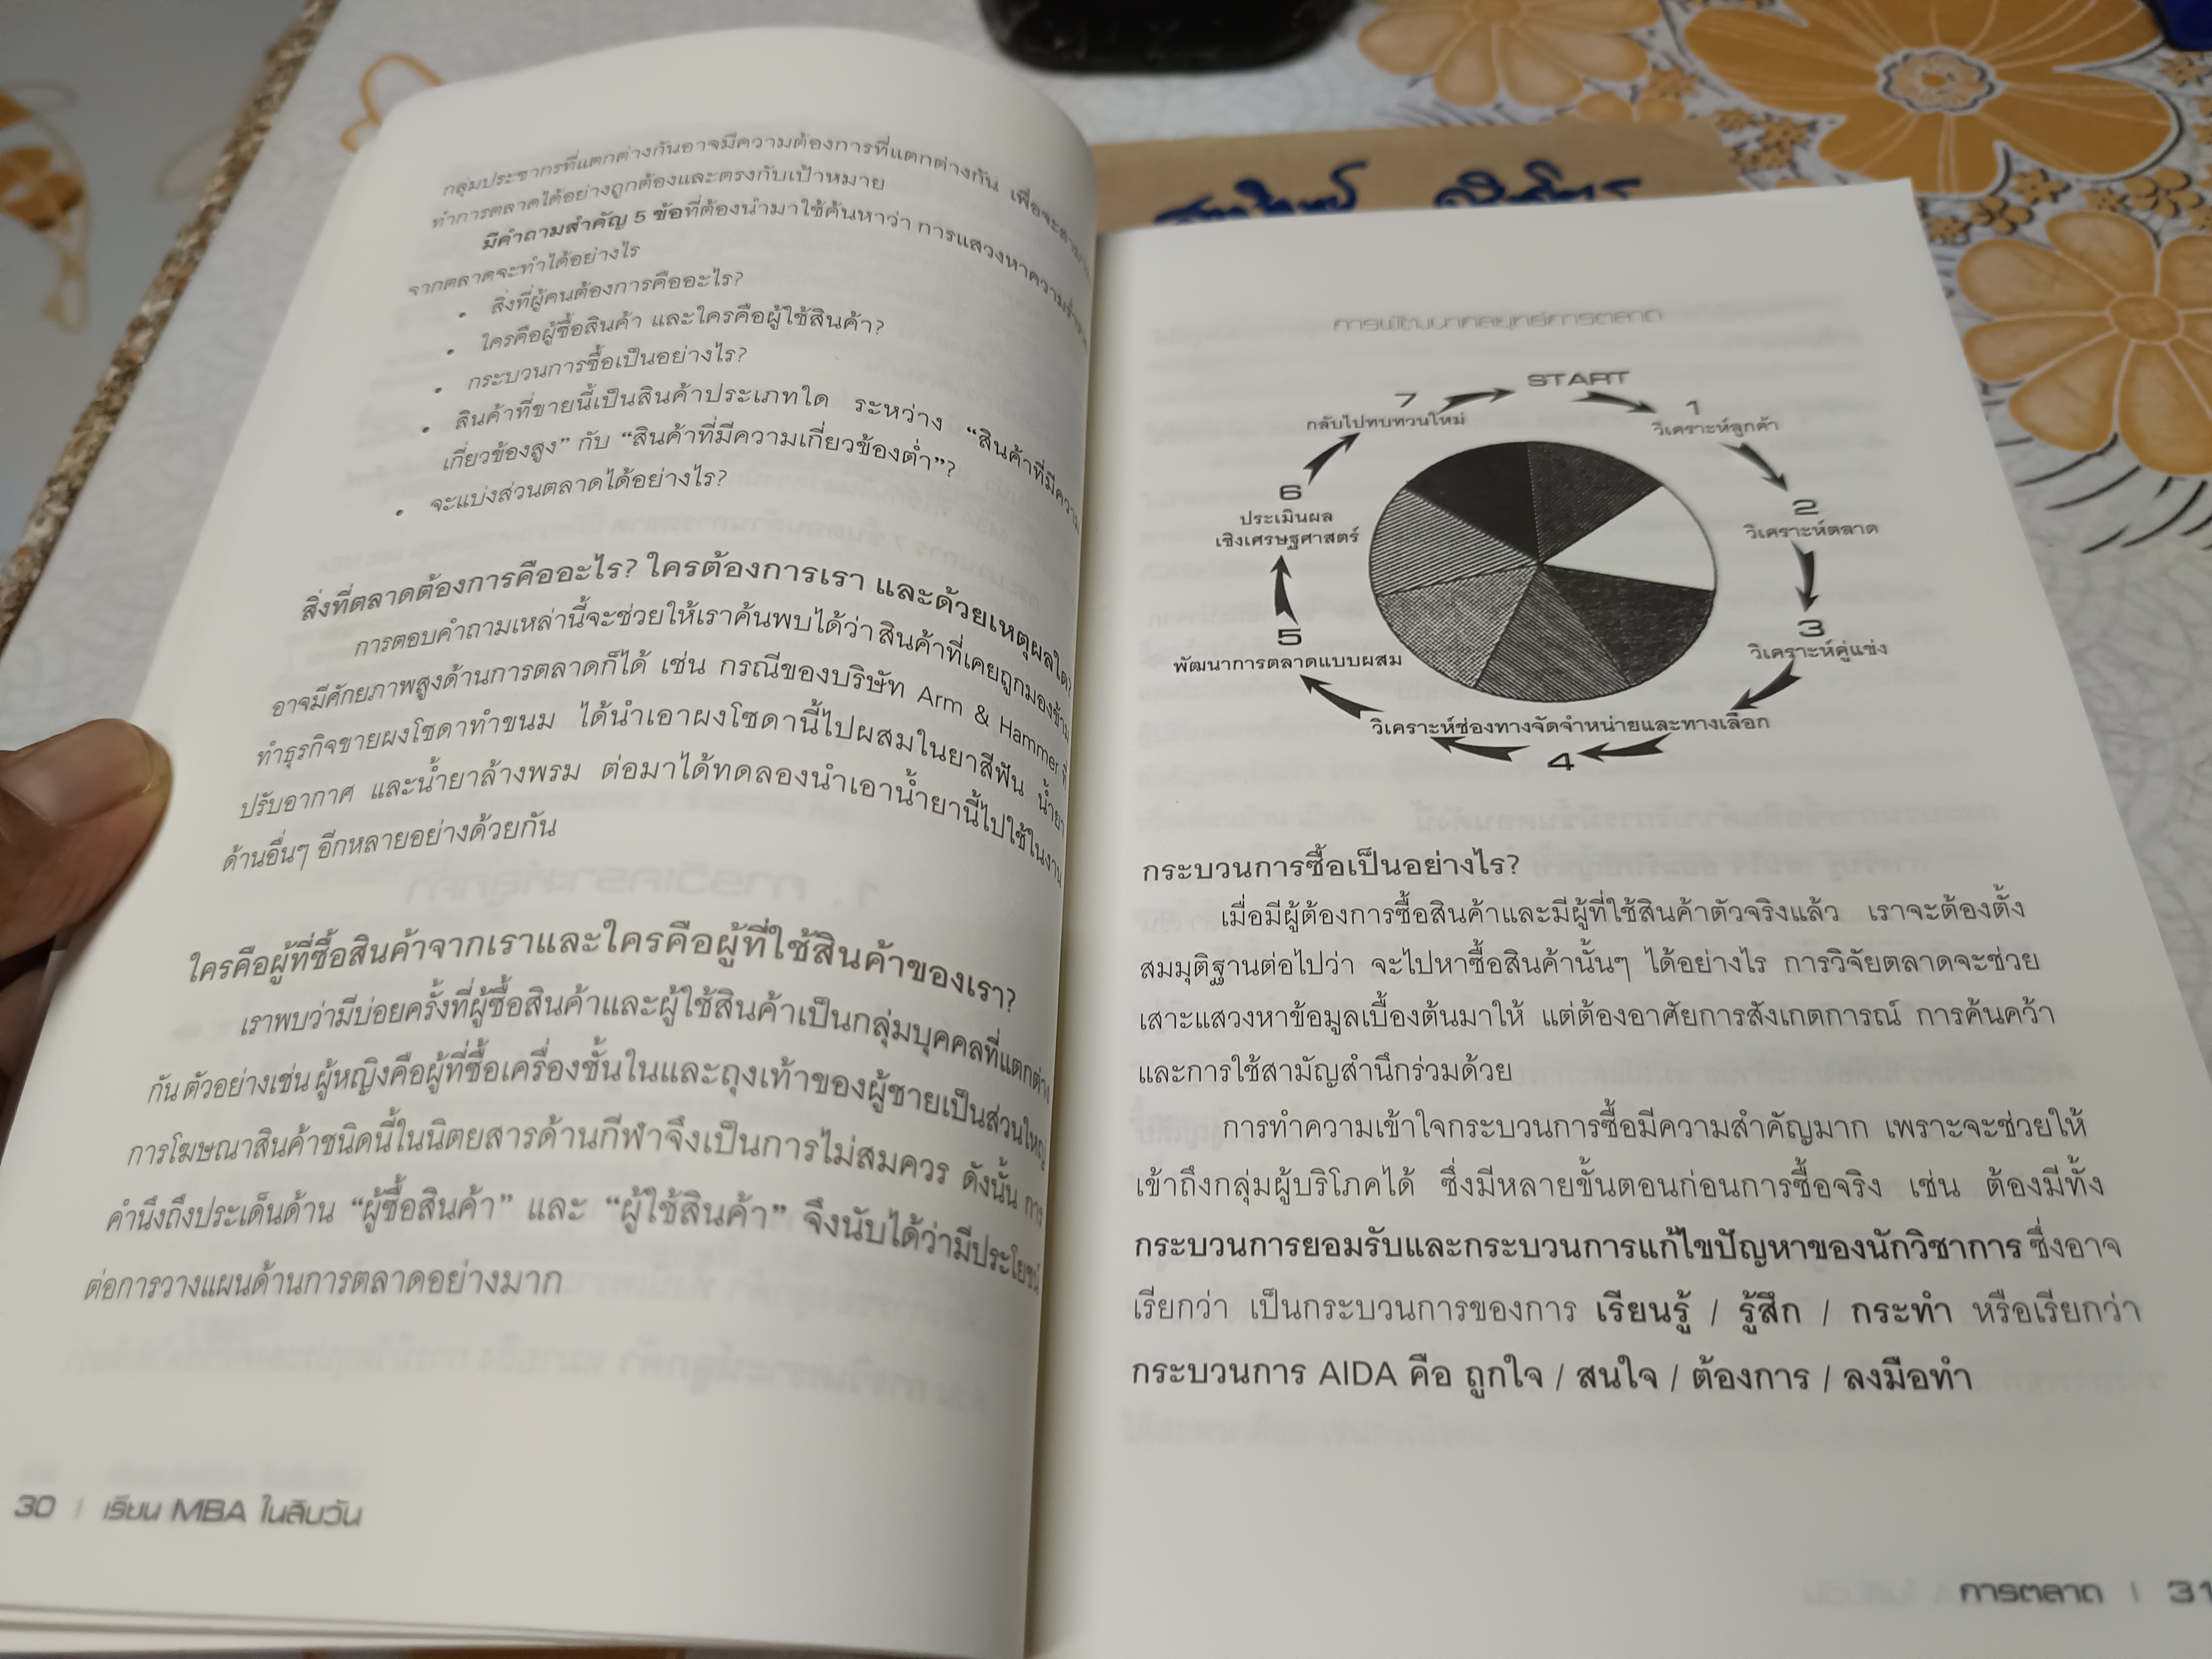 กลุ่มประชากรที่แตกต่างกันอาจมีความต้องการที่แตกต่างกัน เพื่อจะสามารถ
ทำการตลาดได้อย่างถูกต้องและตรงกับเป้าหมาย
มีคำถามสำคัญ 5 ข้อที่ต้องนำมาใช้ค้นหาว่า การแสวงหาความ
จากตลาดจะทำได้อย่างไร
• สิ่งที่ผู้คนต้องการคืออะไร?
• ใครคือผู้ซื้อสินค้า และใครคือผู้ใช้สินค้า?
• กระบวนการซื้อเป็นอย่างไร?
• สินค้าที่ขายนี้เป็นสินค้าประเภทใด ระหว่าง “สินค้าที่มีความ
เกี่ยวข้องสูง” กับ “สินค้าที่มีความเกี่ยวข้องต่ำ”?
• จะแบ่งส่วนตลาดได้อย่างไร?
สิ่งที่ตลาดต้องการคืออะไร? ใครต้องการเรา และด้วยเหตุผลใด?
การตอบคำถามเหล่านี้จะช่วยให้เราค้นพบได้ว่า สินค้าที่เคยถูกมองข้าม
อาจมีศักยภาพสูงด้านการตลาดก็ได้ เช่น กรณีของบริษัท Arm & Hammer ที่
ทำธุรกิจขายผงโซดาทำขนม ได้นำเอาผงโซดานี้ไปผสมในยาสีฟัน น้ำยา
ปรับอากาศ และน้ำยาล้างพรม ต่อมาได้ทดลองนำเอาน้ำยานี้ไปใช้ในงาน
ด้านอื่นๆ อีกหลายอย่างด้วยกัน
ใครคือผู้ที่ซื้อสินค้าจากเราและใครคือผู้ที่ใช้สินค้าของเรา?
เราพบว่ามีบ่อยครั้งที่ผู้ซื้อสินค้าและผู้ใช้สินค้าเป็นกลุ่มบุคคลที่แตกต่าง
กัน ตัวอย่างเช่น ผู้หญิงคือผู้ที่ซื้อเครื่องชั้นในและถุงเท้าของผู้ชายเป็นส่วนใหญ่
การโฆษณาสินค้าชนิดนี้ในนิตยสารด้านกีฬาจึงเป็นการไม่สมควร ดังนั้น การ
คำนึงถึงประเด็นด้าน “ผู้ซื้อสินค้า” และ “ผู้ใช้สินค้า” จึงนับได้ว่ามีประโยชน์
ต่อการวางแผนด้านการตลาดอย่างมาก
30 | เรียน MBA ในสิบวัน
การพัฒนากลยุทธ์การตลาด
START
1
วิเคราะห์ลูกค้า
2
วิเคราะห์ตลาด
3
วิเคราะห์คู่แข่ง
วิเคราะห์ช่องทางจัดจำหน่ายและทางเลือก
4
5
พัฒนาการตลาดแบบผสม
6
ประเมินผล
เชิงเศรษฐศาสตร์
7
กลับไปทบทวนใหม่
กระบวนการซื้อเป็นอย่างไร?
เมื่อมีผู้ต้องการซื้อสินค้าและมีผู้ที่ใช้สินค้าตัวจริงแล้ว เราจะต้องตั้ง
สมมุติฐานต่อไปว่า จะไปหาซื้อสินค้านั้นๆ ได้อย่างไร การวิจัยตลาดจะช่วย
เสาะแสวงหาข้อมูลเบื้องต้นมาให้ แต่ต้องอาศัยการสังเกตการณ์ การค้นคว้า
และการใช้สามัญสำนึกร่วมด้วย
การทำความเข้าใจกระบวนการซื้อมีความสำคัญมาก เพราะจะช่วยให้
เข้าถึงกลุ่มผู้บริโภคได้ ซึ่งมีหลายขั้นตอนก่อนการซื้อจริง เช่น ต้องมีทั้ง
กระบวนการยอมรับและกระบวนการแก้ไขปัญหาของนักวิชาการ ซึ่งอาจ
เรียกว่า เป็นกระบวนการของการ เรียนรู้ / รู้สึก / กระทำ หรือเรียกว่า
กระบวนการ AIDA คือ ถูกใจ / สนใจ / ต้องการ / ลงมือทำ
การตลาด | 31